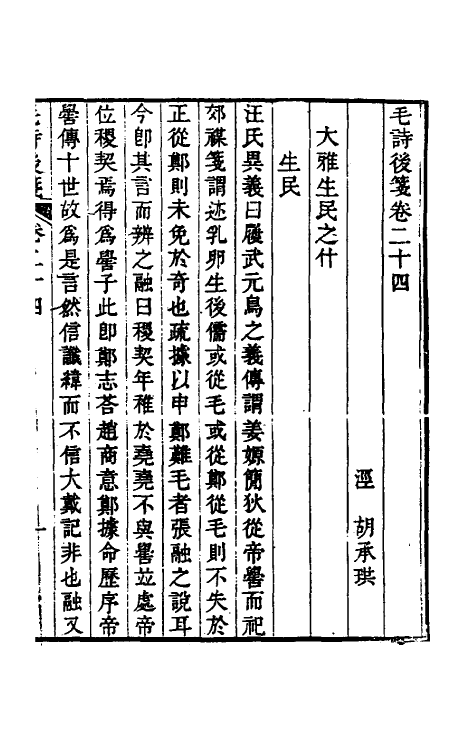 毛詩後箋卷二十四
涇　胡承珙
大雅生民之什
生民
汪氏異義曰履武元鳥之義傳謂姜嫄簡狄從帝嚳而祀
郊禖箋謂迹乳卵生後儒或從毛或從鄭從毛則不失於
正從鄭則未免於奇也疏據以申鄭難毛者張融之說耳
今卽其言而辨之融曰稷契年稚於堯堯不與嚳竝處帝
位稷契焉得爲嚳子此卽鄭志荅趙商意鄭據命歷序帝
嚳傳十世故爲是言然信讖緯而不信大戴記非也融又
毛詩後箋　卷二十四　一